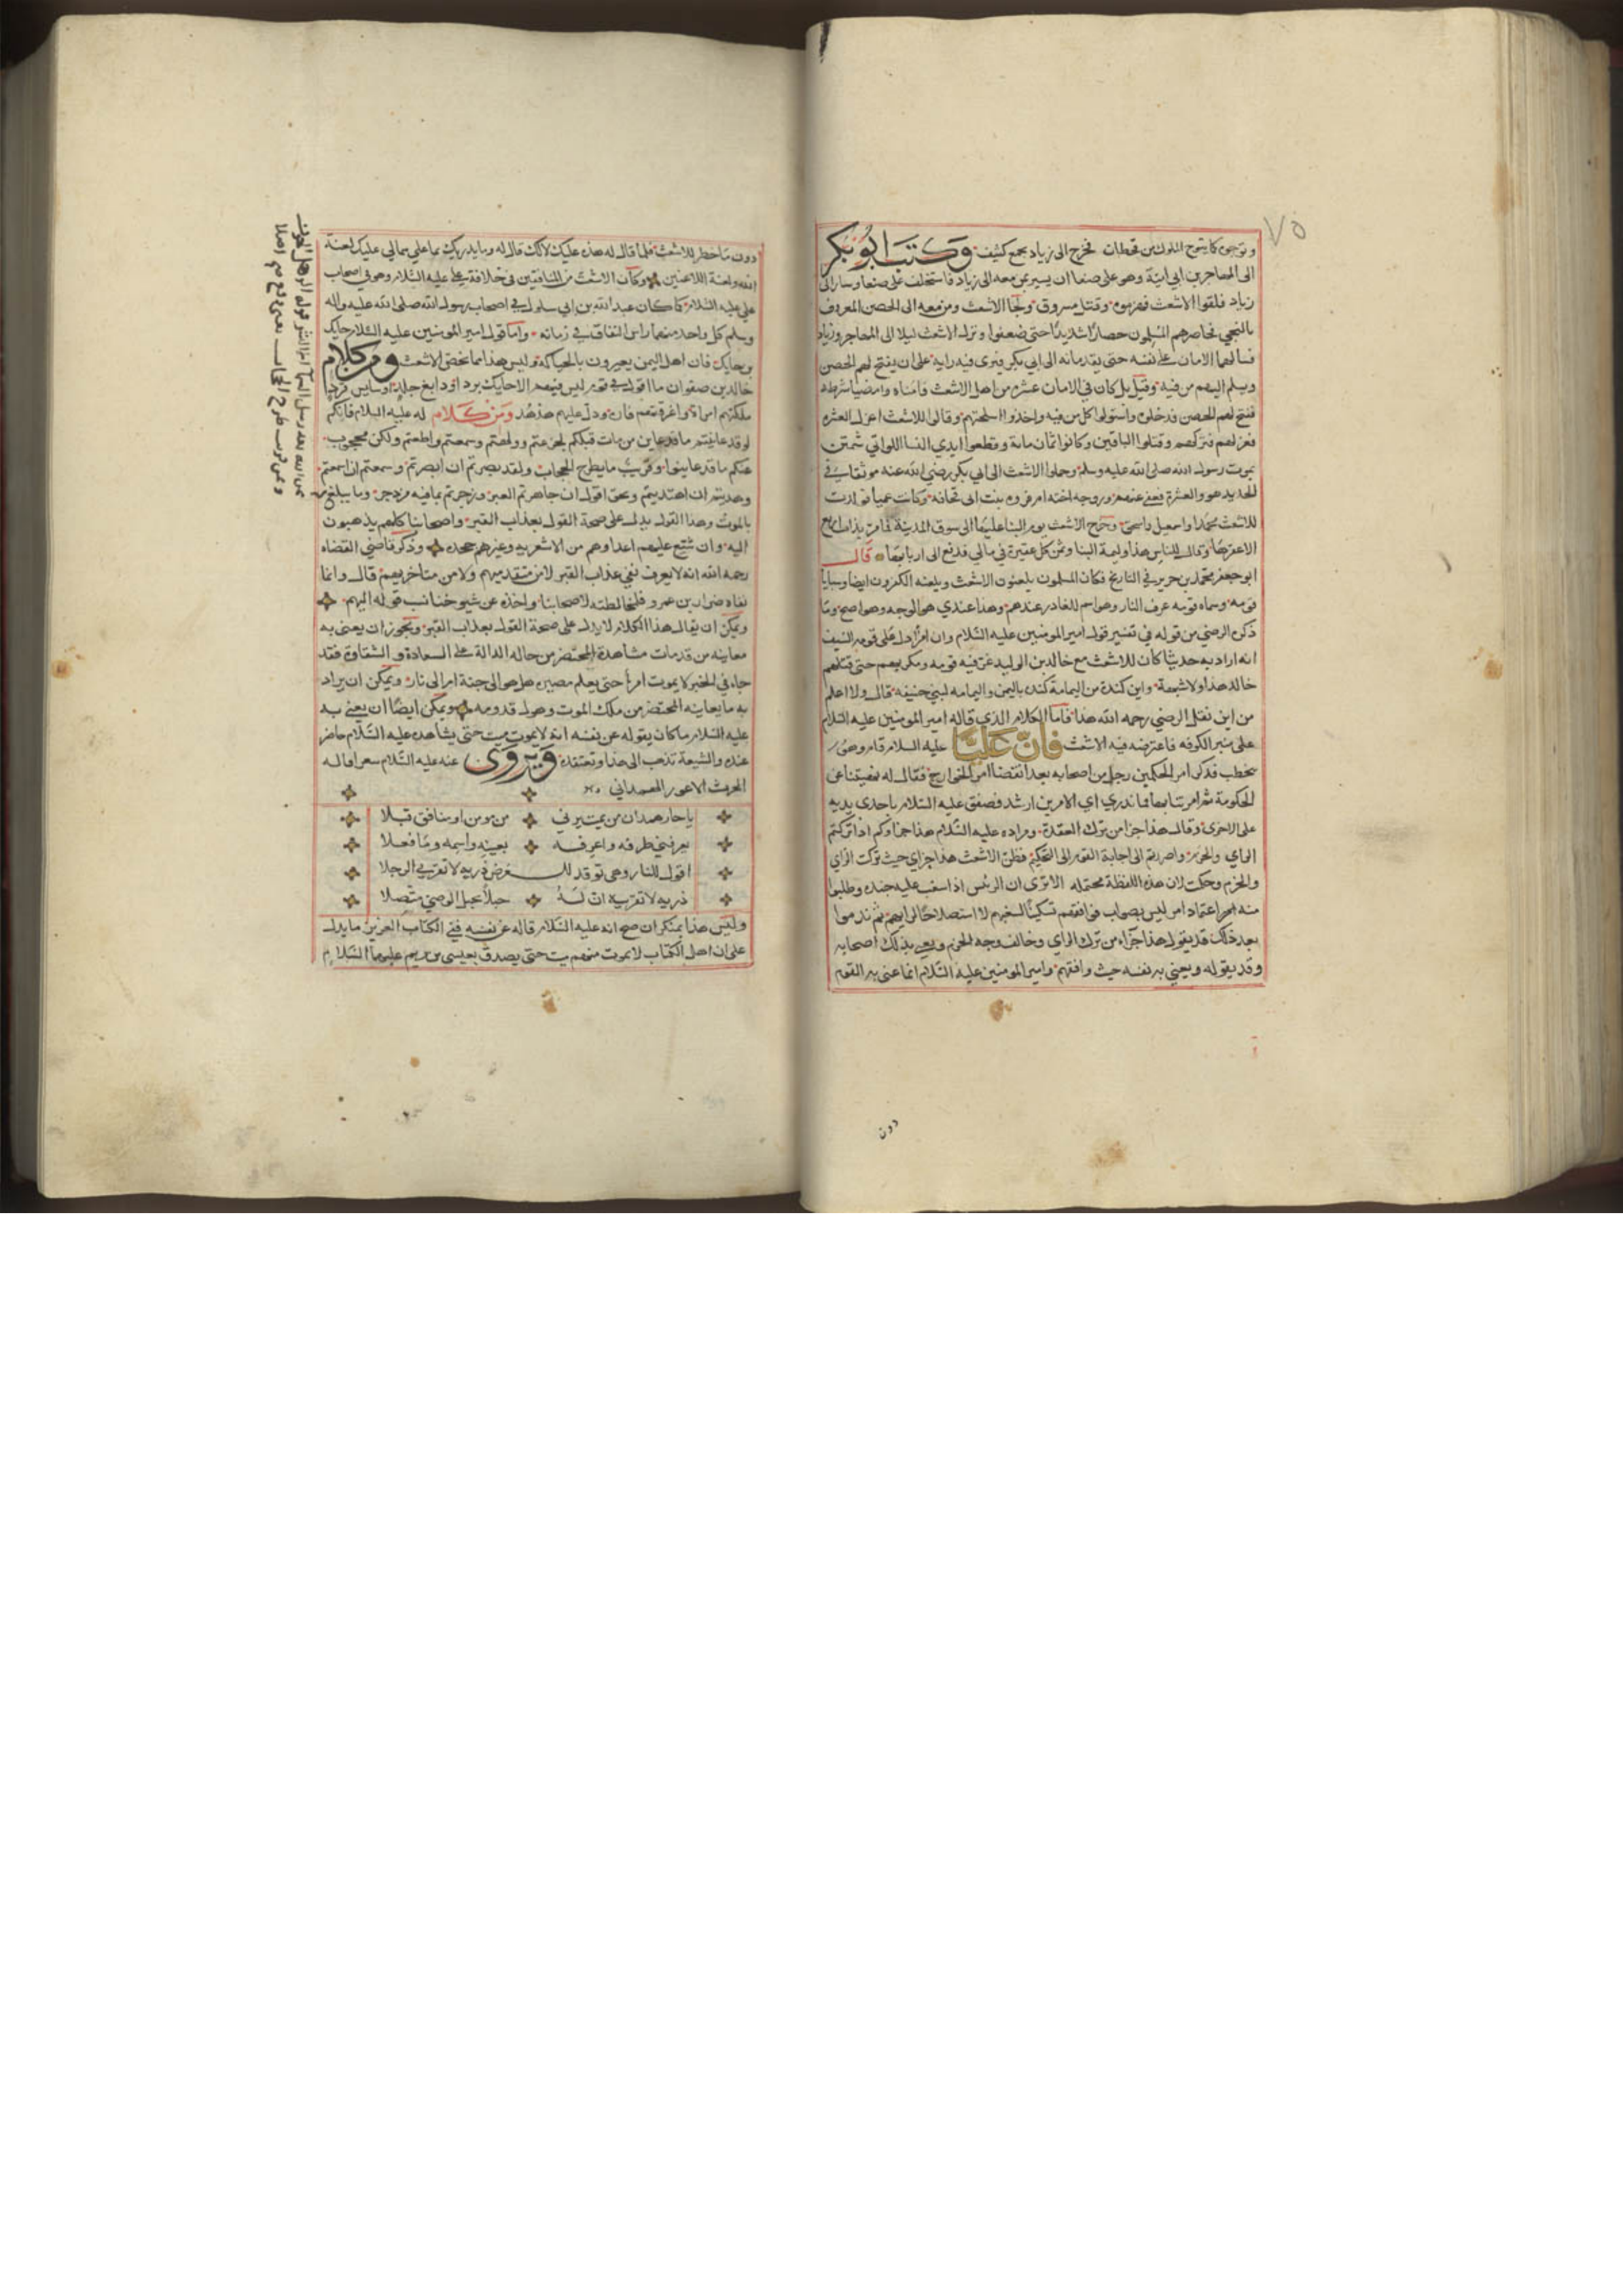 ٧٥
وتوجوه كما يتوج الملوك من قحطان فخرج الى زياد بجمع كثيف وكتب ابو بكر
الى المهاجر بن ابي امية وهو على صنعا ان يسير بمن معه الى زياد فاستخلف على صنعا وسار الى
زياد فلقوا الاشعث فهزموه وقتل مسروق ولجأ الاشعث ومن معه الى الحصن المعروف
بالنجير فحاصرهم المسلمون حصارًا شديدًا حتى ضعفوا ونزل الاشعث ليلا الى المهاجر وزياد
فسألهما الامان على نفسه حتى يقدما به الى ابي بكر فيرى فيه رايه على ان يفتح لهم الحصن
ويسلم اليهم من فيه وقيل بل كان في الامان عشرة من اهل الاشعث فامناه وامضيا شرطه
ففتح لهم الحصن فدخلوه واستولوا كل من فيه واخذوا اسلحتهم وقالوا للاشعث اعزل العشرة
فعزلهم فتركهم وقتلوا الباقين وكانوا ثمان مائة وقطعوا ايدي النسا اللواتي شمتن
بموت رسول الله صلى الله عليه وسلم وحملوا الاشعث الى ابي بكر رضي الله عنه موثقا في
الحديد هو والعشرة فعفى عنه وعنهم وزوجه اخته ام فروة بنت ابي قحافة وكانت عميا فولدت
للاشعث محمدا واسمعيل واسحق وخرج الاشعث يوم البنا عليها الى سوق المدينة فما مر بذات اربع
الا عقرها وقال للناس هذا وليمة البنا وثمن كل عقيرة في مالي فدفع الى اربابها قال
ابو جعفر محمد بن جرير في التاريخ فكان المسلمون يلعنون الاشعث ويلعنه الكفرون ايضا وسبايا
قومه وسماه قومه عرف النار وهو اسم للغادر عندهم وهذا عندي هو الوجه وهو اصح وما
ذكره الرضي من قوله في تفسير قول امير المومنين عليه السلام وان امرأ دل على قومه السيف
انه اراد به حديثا كان للاشعث مع خالد بن الوليد غر فيه قومه ومكر بهم حتى قتلهم
خالد هذا ولا شبهة واين كندة من اليمامة كنده باليمن واليمامه لبني حنيفه قال ولا اعلم
من اين نقل الرضي رحمه الله هذا فاما الكلام الذي قاله امير المومنين عليه السلام
على منبر الكوفه فاعترضه فيه الاشعث فان عليا عليه السلام قام وهو
يخطب فذكر امر الحكمين رجل من اصحابه بعد انقضا امر الخوارج فقال له نهيتنا عن
الحكومة ثم امرتنا بها فما ندري اي الامرين ارشد فصفق عليه السلام باحدى يديه
على الاخرى وقال هذا جزا من ترك العقدة ومراده عليه السلام هذا جزاوكم اذ تركتم
الراي والحزم واصررتم الى اجابة القوم الى التحكيم فظن الاشعث هذا جزاي حيث تركت الراي
والحزم وحكمت لان هذه اللفظة محتمله الا ترى ان الرئيس اذا شغب عليه جنده وطلبوا
منه اعتماد امر ليس بصواب فوافقهم تسكينًا لشغبهم لا استصلاحًا لرايهم ثم ندموا
بعد ذلك قد يقول هذا جزاء من ترك الراي وخالف وجه الحزم ويعني بذلك اصحابه
وقد يقوله ويعني به نفسه حيث وافقهم وامير المومنين عليه السلام انما عنى به القوم
دون
دون ما خطر للاشعث فلما قال له هذه عليك لا لك قال له وما يدريك ما علي مما لي عليك لعنة
الله ولعنة اللاعنين وكان الاشعث من المنافقين في خلافة علي عليه السلام وهو في اصحاب
علي عليه السلام كما كان عبد الله بن ابي سلول في اصحاب رسول الله صلى الله عليه واله
وسلم كل واحد منهما راس النفاق في زمانه واما قول امير المومنين عليه السلام حايك
بن حايك فان اهل اليمن يعيرون بالحياكة وليس هذا مما يخص الاشعث ومن كلام
خالد بن صفوان ما اقول في قوم ليس فيهم الا حايك برد او دابغ جلد اوسايس قرد
ملكتهم امراة واغرقتهم فارة ودل عليهم هدهد ومن كلام له عليه السلام فانكم
لو قد عاينتم ما قد عاين من مات قبلكم لجزعتم وولهتم وسمعتم واطعتم ولكن محجوب
عنكم ما قد عاينوا وقريب ما يطرح الحجاب ولقد بصرتم ان ابصرتم وسمعتم ان اسمعتم
وهديتم ان اهتديتم وبحق اقول ان جاهرتم العبر وزجرتم بما فيه مزدجر وما يبلغ
بالموت وهذا القول يدل على صحة القول بعذاب القبر واصحابنا كلهم يذهبون
اليه وان شنع عليهم اعداوهم من الاشعريه وغيرهم بجحده وذكر قاضي القضاه
رحمه الله انه لا يعرف نفي عذاب القبر لا من متقدميهم ولا من متاخريهم قال وانما
نفاه ضرار بن عمرو فلمخالطته لاصحابنا واخذه عن شيوخنا نسب قوله اليهم
ويمكن ان يقال هذا الكلام لا يدل على صحة القول بعذاب القبر ويجوز ان يعنى به
معاينه من قدمات مشاهدة المحتضر من حاله الدالة على السعادة والشقاوة فقد
جاء في الخبر لا يموت امرأ حتى يعلم مصيره هل هو الى جنة ام الى نار ويمكن ان يراد
به ما يعاينه المحتضر من ملك الموت وهول قدومه ويمكن ايضًا ان يعني به
عليه السلام ما كان يقوله عن نفسه انه لا يموت ميت حتى يشاهده عليه السلام حاضر
عنده والشيعة تذهب الى هذا وتعتقده ويروى عنه عليه السلام شعرا قاله
للحرث الاعور الهمداني
يا حار همدان من يمت يرني من مومن او منافق قبلا
يعرفني طرفه واعرفه بعينه واسمه وما فعلا
اقول للنار وهي توقد للعرض ذريه لا تقربي الرجلا
ذريه لا تقربيه ان له حبلاً بحبل الوصي متصلا
وليس هذا بمنكر ان صح انه عليه السلام قاله عن نفسه ففي الكتاب العزيز ما يدل
على ان اهل الكتاب لا يموت منهم ميت حتى يصدق بعيسى بن مريم عليهما السلام
عن الله بعد رسل السما الا البشر